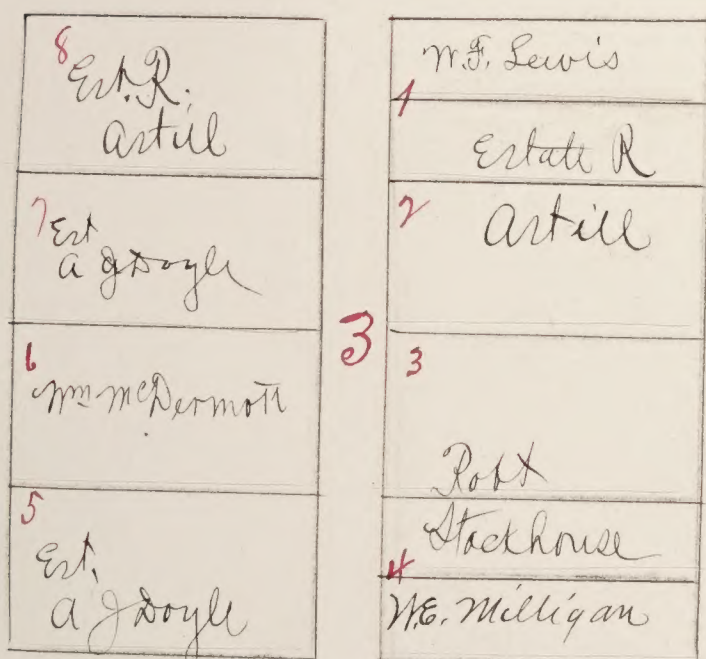 8
Est. R.
Artill
7
Est
A J Doyle
6
Wm McDermott
5
Est.
A J Doyle
3
W.F. Lewis
1
Estate R
2
Artill
3
Robt
Stockhouse
4
W.E. Milligan